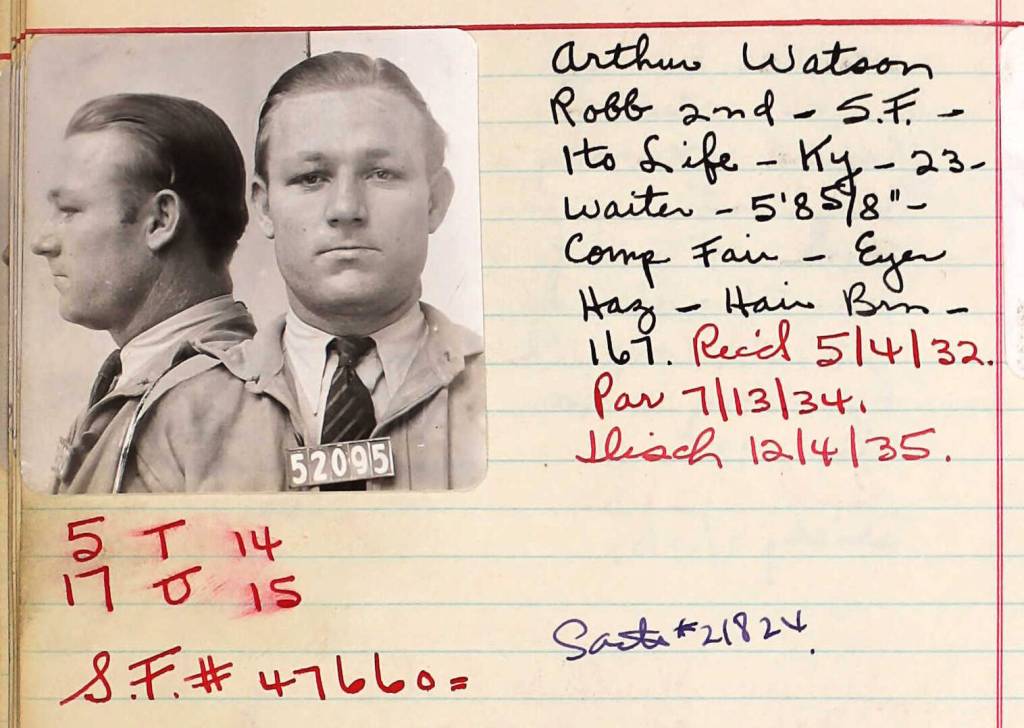 Arthur Watson
Robb 2nd - S.F. -
1 to Life - Ky - 23 -
Waiter - 5'8 5/8" -
Comp Fair - Eyes
Haz - Hair Brn -
167. Rec'd 5/4/32.
Par 7/13/34.
Disch 12/4/35.
52095
5 T 14
17 U 15
Sacto #21824.
S.F. # 47660 =